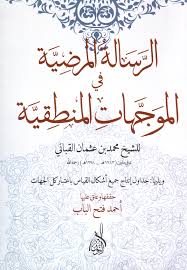 الرسالة المرضية
في
الموجهات المنطقية
للشيخ محمد بن عثمان القباني
ويليها: جداول إنتاج جميع أشكال القياس باعتبار كل الجهات
حققها وعلق عليها
أحمد فتح الباب